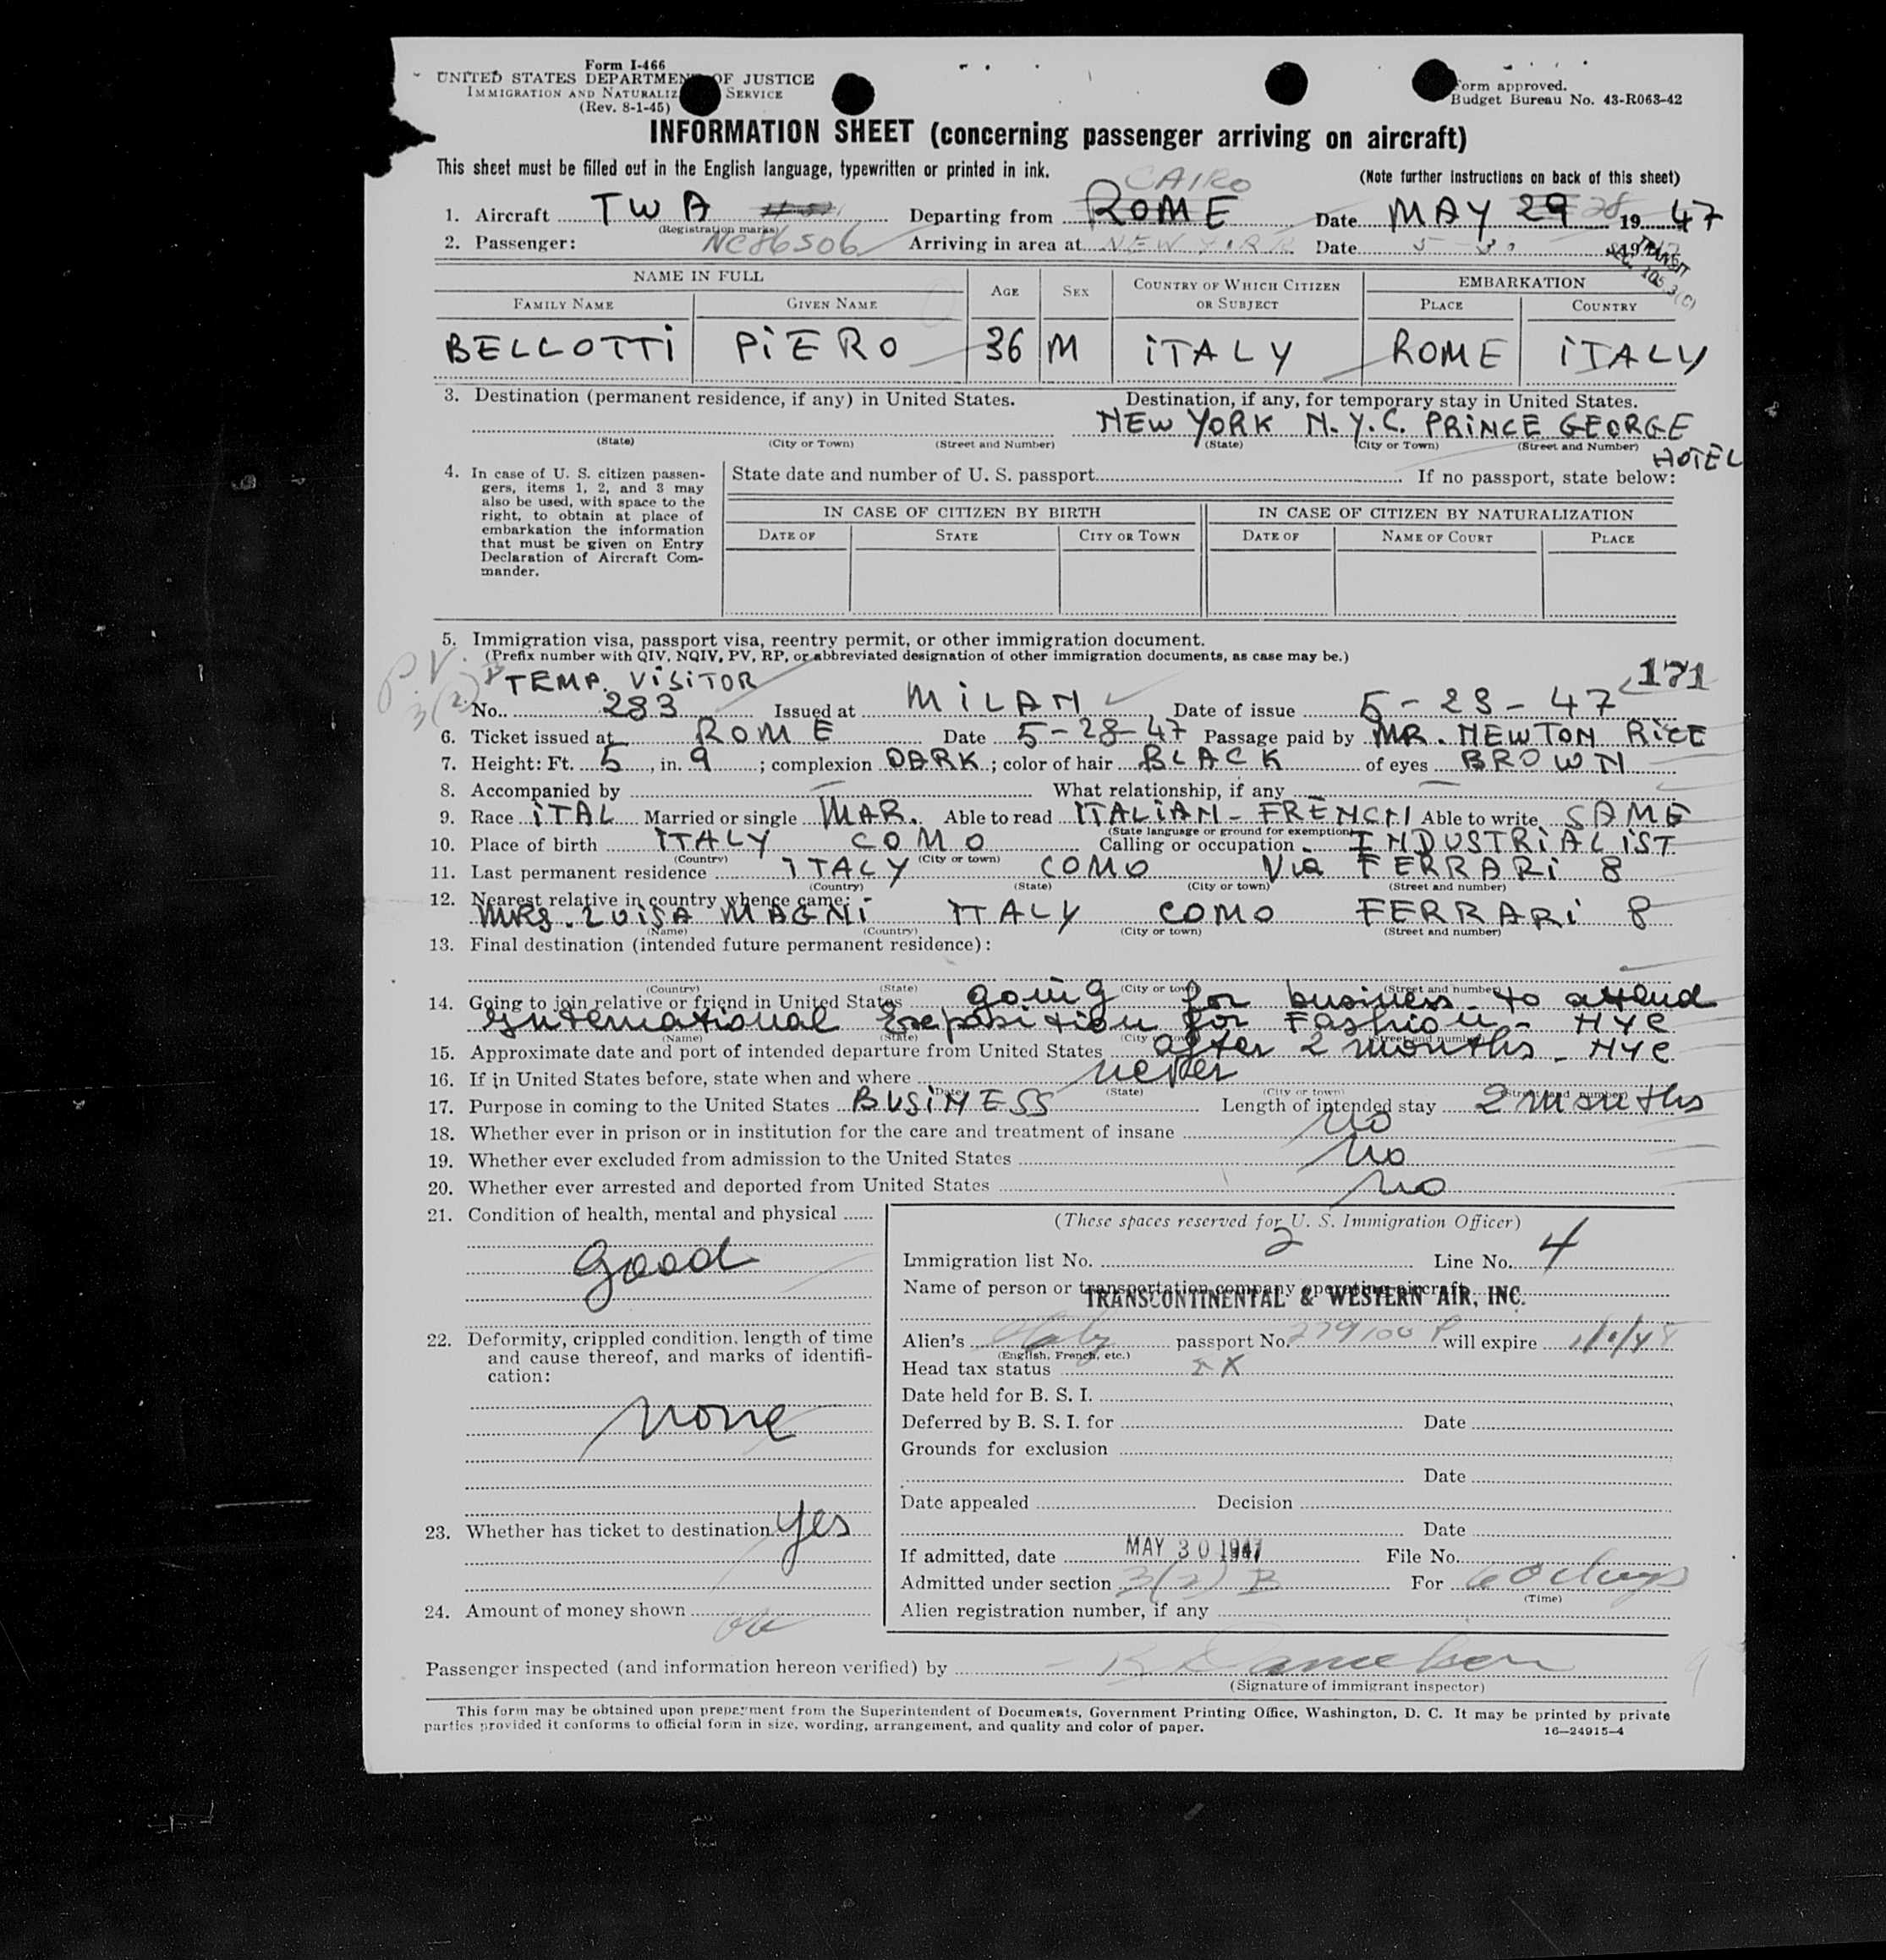 Form I-466
UNITED STATES DEPARTMENT OF JUSTICE
IMMIGRATION AND NATURALIZ SERVICE
(Rev. 8-1-45)
Form approved.
Budget Bureau No. 43-R063-42
INFORMATION SHEET (concerning passenger arriving on aircraft)
This sheet must be filled out in the English language, typewritten or printed in ink. (Note further instructions on back of this sheet)
CAIRO
1. Aircraft TWA Departing from ROME Date MAY 29 28 19 47
(Registration marks)
2. Passenger: NC86506 Arriving in area at NEW YORK Date 5 30 19
TRANSIT
SEC. 105.3(C)
NAME IN FULL AGE SEX COUNTRY OF WHICH CITIZEN OR SUBJECT EMBARKATION
FAMILY NAME GIVEN NAME PLACE COUNTRY
BELLOTTI PIERO 36 M ITALY ROME ITALY
3. Destination (permanent residence, if any) in United States. Destination, if any, for temporary stay in United States.
NEW YORK N.Y.C. PRINCE GEORGE
(State) (City or Town) (Street and Number) (State) (City or Town) (Street and Number)
HOTEL
4. In case of U. S. citizen passengers, items 1, 2, and 3 may also be used, with space to the right, to obtain at place of embarkation the information that must be given on Entry Declaration of Aircraft Commander.
State date and number of U. S. passport If no passport, state below:
IN CASE OF CITIZEN BY BIRTH IN CASE OF CITIZEN BY NATURALIZATION
DATE OF STATE CITY OR TOWN DATE OF NAME OF COURT PLACE
5. Immigration visa, passport visa, reentry permit, or other immigration document.
(Prefix number with QIV, NQIV, PV, RP, or abbreviated designation of other immigration documents, as case may be.)
P.V. 3(2)B
TEMP. VISITOR 171
No. 283 Issued at MILAN Date of issue 5-23-47
6. Ticket issued at ROME Date 5-28-47 Passage paid by MR. NEWTON RICE
7. Height: Ft. 5, in. 9; complexion DARK; color of hair BLACK of eyes BROWN
8. Accompanied by — What relationship, if any —
9. Race ITAL Married or single MAR. Able to read ITALIAN - FRENCH Able to write SAME
(State language or ground for exemption)
10. Place of birth ITALY COMO Calling or occupation INDUSTRIALIST
(Country) (City or town)
11. Last permanent residence ITALY COMO Via FERRARI 8
(Country) (State) (City or town) (Street and number)
12. Nearest relative in country whence came:
MRS. LUISA MAGNI ITALY COMO FERRARI 8
(Name) (Country) (City or town) (Street and number)
13. Final destination (intended future permanent residence):
(Country) (State) (City or town) (Street and number)
14. Going to join relative or friend in United States going for business - to attend
International Exposition for Fashion - NYC
(Name) (State) (City or town) (Street and number)
15. Approximate date and port of intended departure from United States after 2 months - NYC
16. If in United States before, state when and where never
(Date) (State) (City or town) (Street and number)
17. Purpose in coming to the United States BUSINESS Length of intended stay 2 months
18. Whether ever in prison or in institution for the care and treatment of insane no
19. Whether ever excluded from admission to the United States no
20. Whether ever arrested and deported from United States no
21. Condition of health, mental and physical
good
22. Deformity, crippled condition, length of time and cause thereof, and marks of identification:
none
23. Whether has ticket to destination yes
24. Amount of money shown ok
(These spaces reserved for U. S. Immigration Officer)
Immigration list No. 2 Line No. 4
Name of person or transportation company operating aircraft
TRANSCONTINENTAL & WESTERN AIR, INC.
Alien's Italy passport No. 279100 P will expire
(English, French, etc.)
Head tax status
Date held for B. S. I.
Deferred by B. S. I. for Date
Grounds for exclusion
Date
Date appealed Decision
Date
If admitted, date MAY 30 1947 File No.
Admitted under section 3(2) B For 60 days
(Time)
Alien registration number, if any
Passenger inspected (and information hereon verified) by
(Signature of immigrant inspector)
This form may be obtained upon prepayment from the Superintendent of Documents, Government Printing Office, Washington, D. C. It may be printed by private
parties provided it conforms to official form in size, wording, arrangement, and quality and color of paper.
16—24915-4